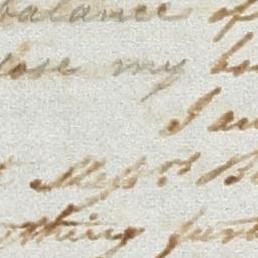 balance of
lose my
I am
Messrs B
thing furt